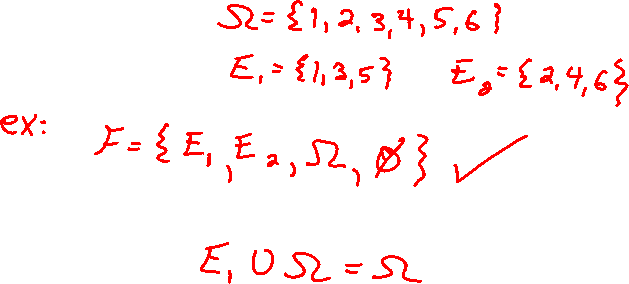 Ω = {1, 2, 3, 4, 5, 6}
E₁ = {1, 3, 5} E₂ = {2, 4, 6}
ex:
F = {E₁, E₂, Ω, ∅} ✓
E₁ ∪ Ω = Ω